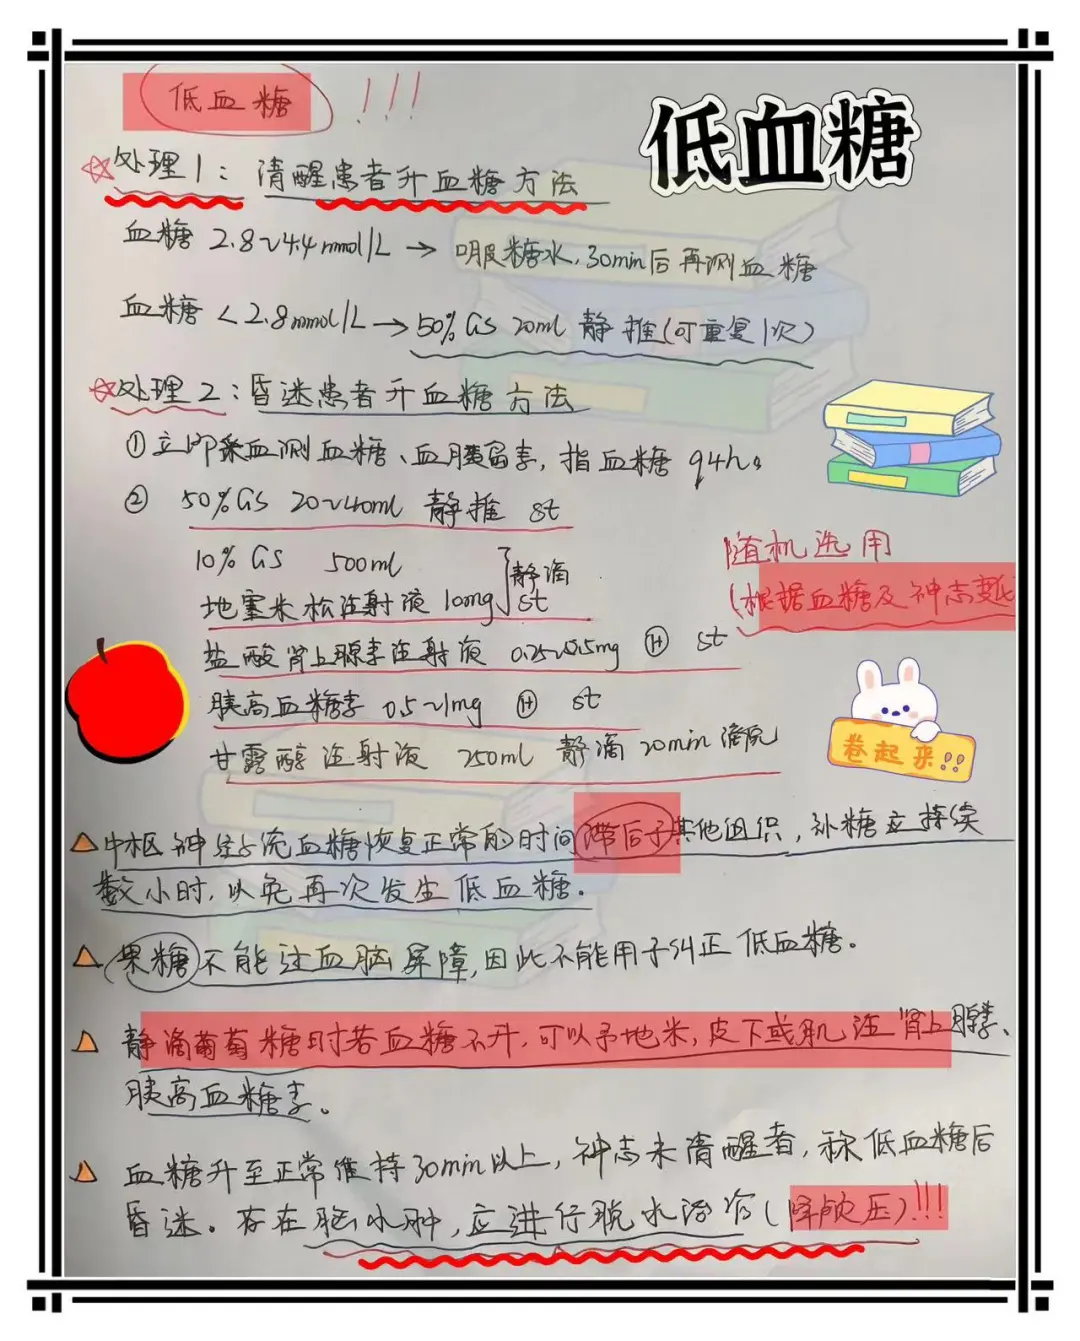 低血糖 !!!
低血糖
处理1：清醒患者升血糖方法
血糖 2.8~4.4mmol/L → 口服糖水,30min后再测血糖
血糖 <2.8mmol/L → 50%GS 20ml 静推(可重复1次)
处理2：昏迷患者升血糖方法
① 立即采血测血糖、血胰岛素,指血糖 q4h。
② 50%GS 20~40ml 静推 st
10% GS 500ml
地塞米松注射液 10mg
静滴
st
随机选用
(根据血糖及神志变化
盐酸肾上腺素注射液 0.25~0.5mg Ⓗ st
胰高血糖素 0.5~1mg Ⓗ st
甘露醇注射液 250ml 静滴 20min滴完
卷起来!!
中枢神经系统血糖恢复正常的时间滞后于其他组织,补糖应持续
数小时,以免再次发生低血糖.
果糖不能过血脑屏障,因此不能用于纠正低血糖.
静滴葡萄糖时若血糖不升,可以予地米,皮下或肌注肾上腺素、
胰高血糖素。
血糖升至正常维持30min以上,神志未清醒者,称低血糖后
昏迷。存在脑水肿,应进行脱水治疗(降颅压)!!!